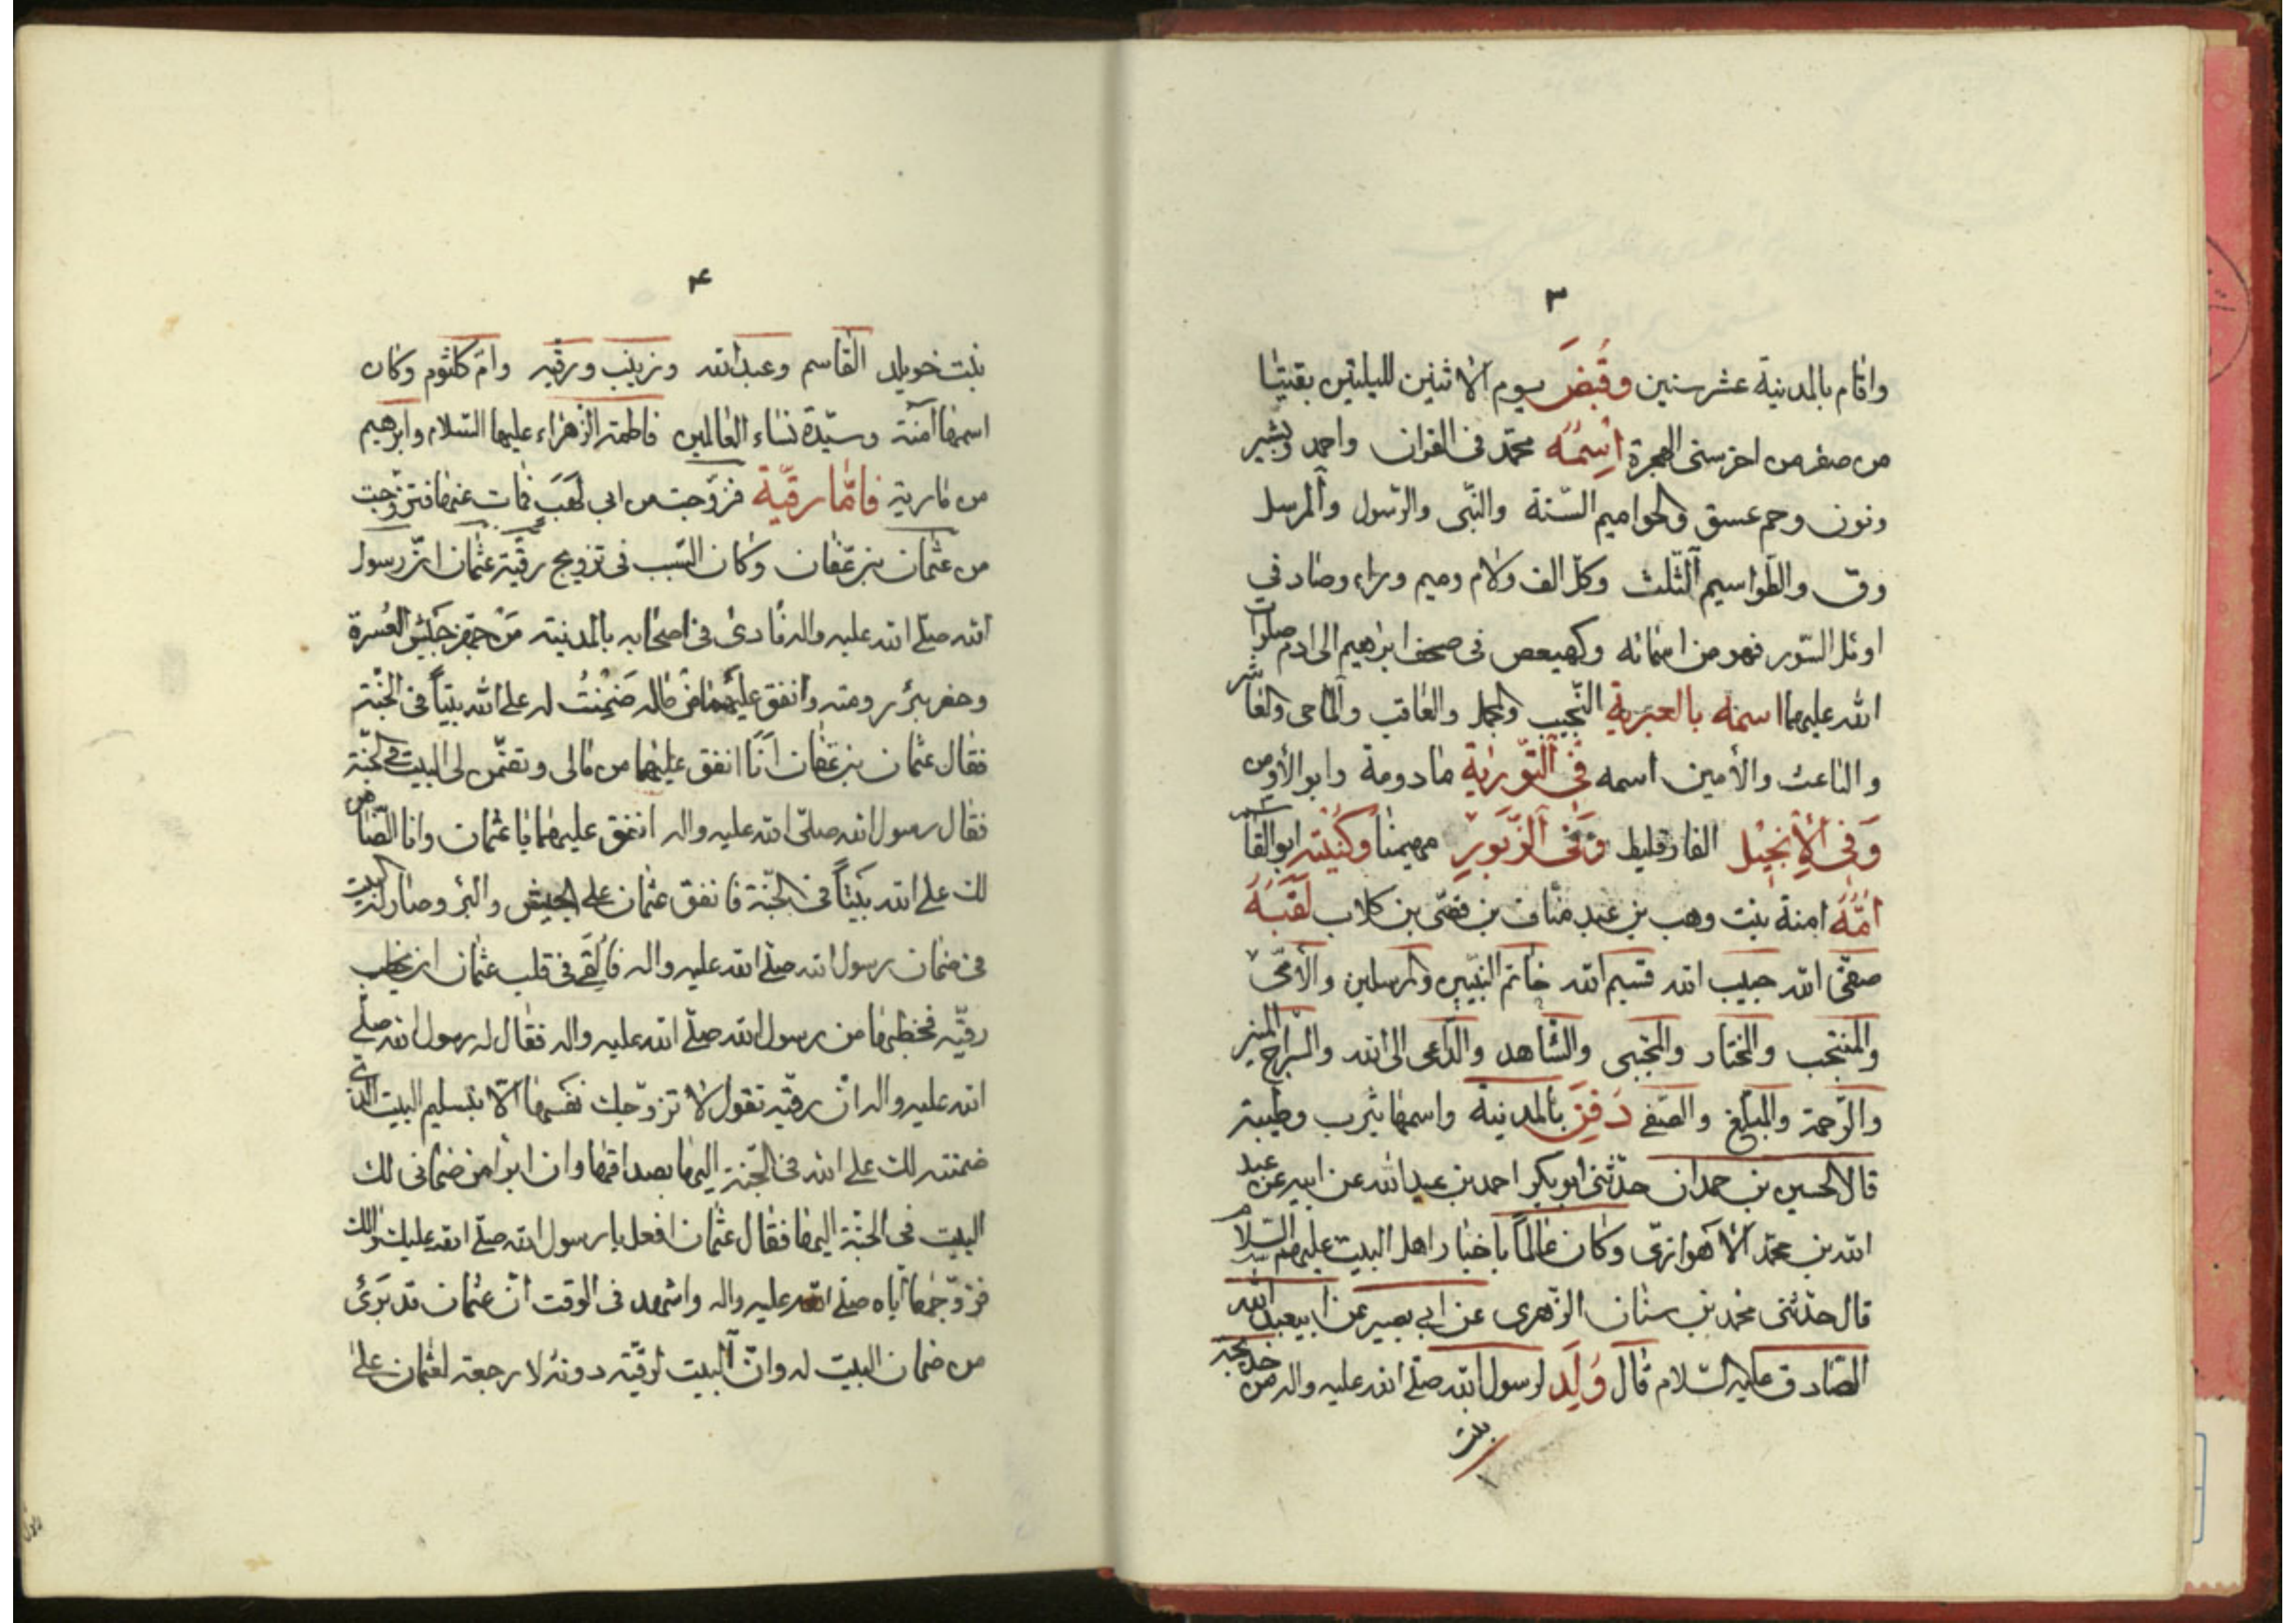 ٣
واقام بالمدينة عشر سنين وقُبِضَ يوم الاثنين لليلتين بقيتا
من صفر من احز سنى الهجرة اسمُهُ محمّد فى القران واحمد وبشير
ونون وحم عسق والحواميم السّتة والنّبى والرّسول والمرسل
وق والطّواسيم الثّلث وكلّ الف ولام وميم وراء وصاد في
اوئل السّور فهو من اسمائه وكهيعص فى صحف ابراهيم الى ادم صلوات
الله عليهما اسمه بالعبرية النّجيب والعاقب والماحى والحاشر
والناعت والأمين اسمه فى التّورية مادومة وابو الأرومن
وَفى الإنجيل الفارقليط وَفى الزّبورِ مهيمنا وكنيته ابو القاسم
امّهُ امنة بنت وهب بن عبد مناف بن قصّى بن كلاب لقبَهُ
صفّى الله حبيب الله قسيم الله خاتم النبّيين والمرسلين والأمّى
والمنتجب والمختار والمجتبى والشّاهد والدّاعى الى الله والسّراج المنير
والرّحمة والمبلّغ والصّفى دَفِنَ بالمدينة واسمها يثرب وطيبة
قال الحسين بن حمدان حدّثنى ابو بكر احمد بن عبد الله عن ابيه عن عبد
الله بن محمّد الاهوازى وكان عالماً باخبار اهل البيت عليهم السّلام
قال حدّثنى محمد بن سنان الزّهرى عن ابي بصير عن ابيعبد الله
الصّادق عليه السّلام قال وُلِد لرسول الله صلّى الله عليه واله من خديجة
بنت
۴
بنت خويلد القاسم وعبد الله وزينب ورقيه وامّ كلثوم وكان
اسمها آمنة وسيّدة نساء العالمين فاطمة الزّهراء عليها السّلام وابرهيم
من مارية فامّا رقيّة فزوّجت من ابى لَهَبَ فمات عنها فتزوّجت
من عثمان بن عفّان وكان السّبب فى تزويج رقيّة عثمان انّ رسول
الله صلّى الله عليه واله نادى فى اصحابه بالمدينة مَنْ جهّز جَيْش العُسرة
وحفر بئر رومة وانفق عليهما من ماله ضَمِنْتُ له على الله بيتاً فى الجنّة
فقال عثمان بن عفّان اَنَا انفق عليهما من مالى وتضمن لى البيت فى الجنّة
فقال رسول الله صلّى الله عليه واله انفق عليهما يا عثمان وانا الضّامن
لك على الله بَيْتاً فى الجنّة فانفق عثمان على الجيش والبئر وصار له البيت
فى ضمان رسول الله صلّى الله عليه واله فاُلقِىَ فى قلب عثمان ان يخطب
رقيّه فخطبها من رسول الله صلّى الله عليه واله فقال له رسول الله صلّى
الله عليه واله انّ رقيّه تقول لا تزوّجك نفسها الّا بتسليم البيت الّذى
ضمنته لك على الله فى الجّنة اليها بصداقها وان ابرأ من ضمانى لك
البيت فى الجنّة اليها فقال عثمان افعل يا رسول الله صلّى الله عليك والك
فزوّجها ايّاه صلّى الله عليه واله واشهد فى الوقت انّ عثمان قد بَرَئ
من ضمان البيت له وانّ البيت لرقيّة دونه لا رجعة لعثمان على